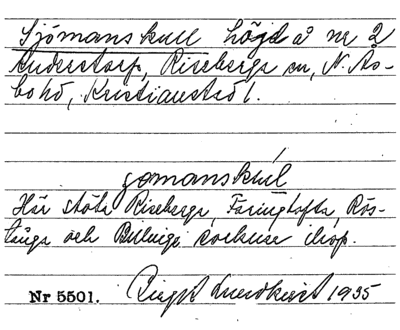 Sjömanskull höjd å nr 2
Anderstorp, Riseberga sn, N. Ås-
bo hd, Kristianstad l.
jomanskùl
Här stöta Riseberga, Färingtofta, Rös-
tånga och Billinge socknar ihop.
Nr 5501. Birgit Lundkvist 1935